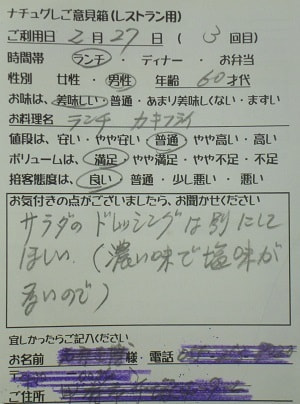 ナチュグレご意見箱(レストラン用)
ご利用日 2月 27日 ( 3回目)
時間帯 ランチ ・ ディナー ・ お弁当
性別 女性 ・ 男性 年齢 60才代
お味は、美味しい・普通・あまり美味しくない・まずい
お料理名 ランチ カキフライ
値段は、安い・やや安い・普通・やや高い・高い
ボリュームは、満足・やや満足・やや不足・不足
接客態度は、良い・普通・少し悪い・悪い
お気付きの点がございましたら、お聞かせください
サラダのドレッシングは別にして
ほしい.(濃い味で塩味が
ので)
宜しかったらご記入ください
お名前 様・電話
ご住所